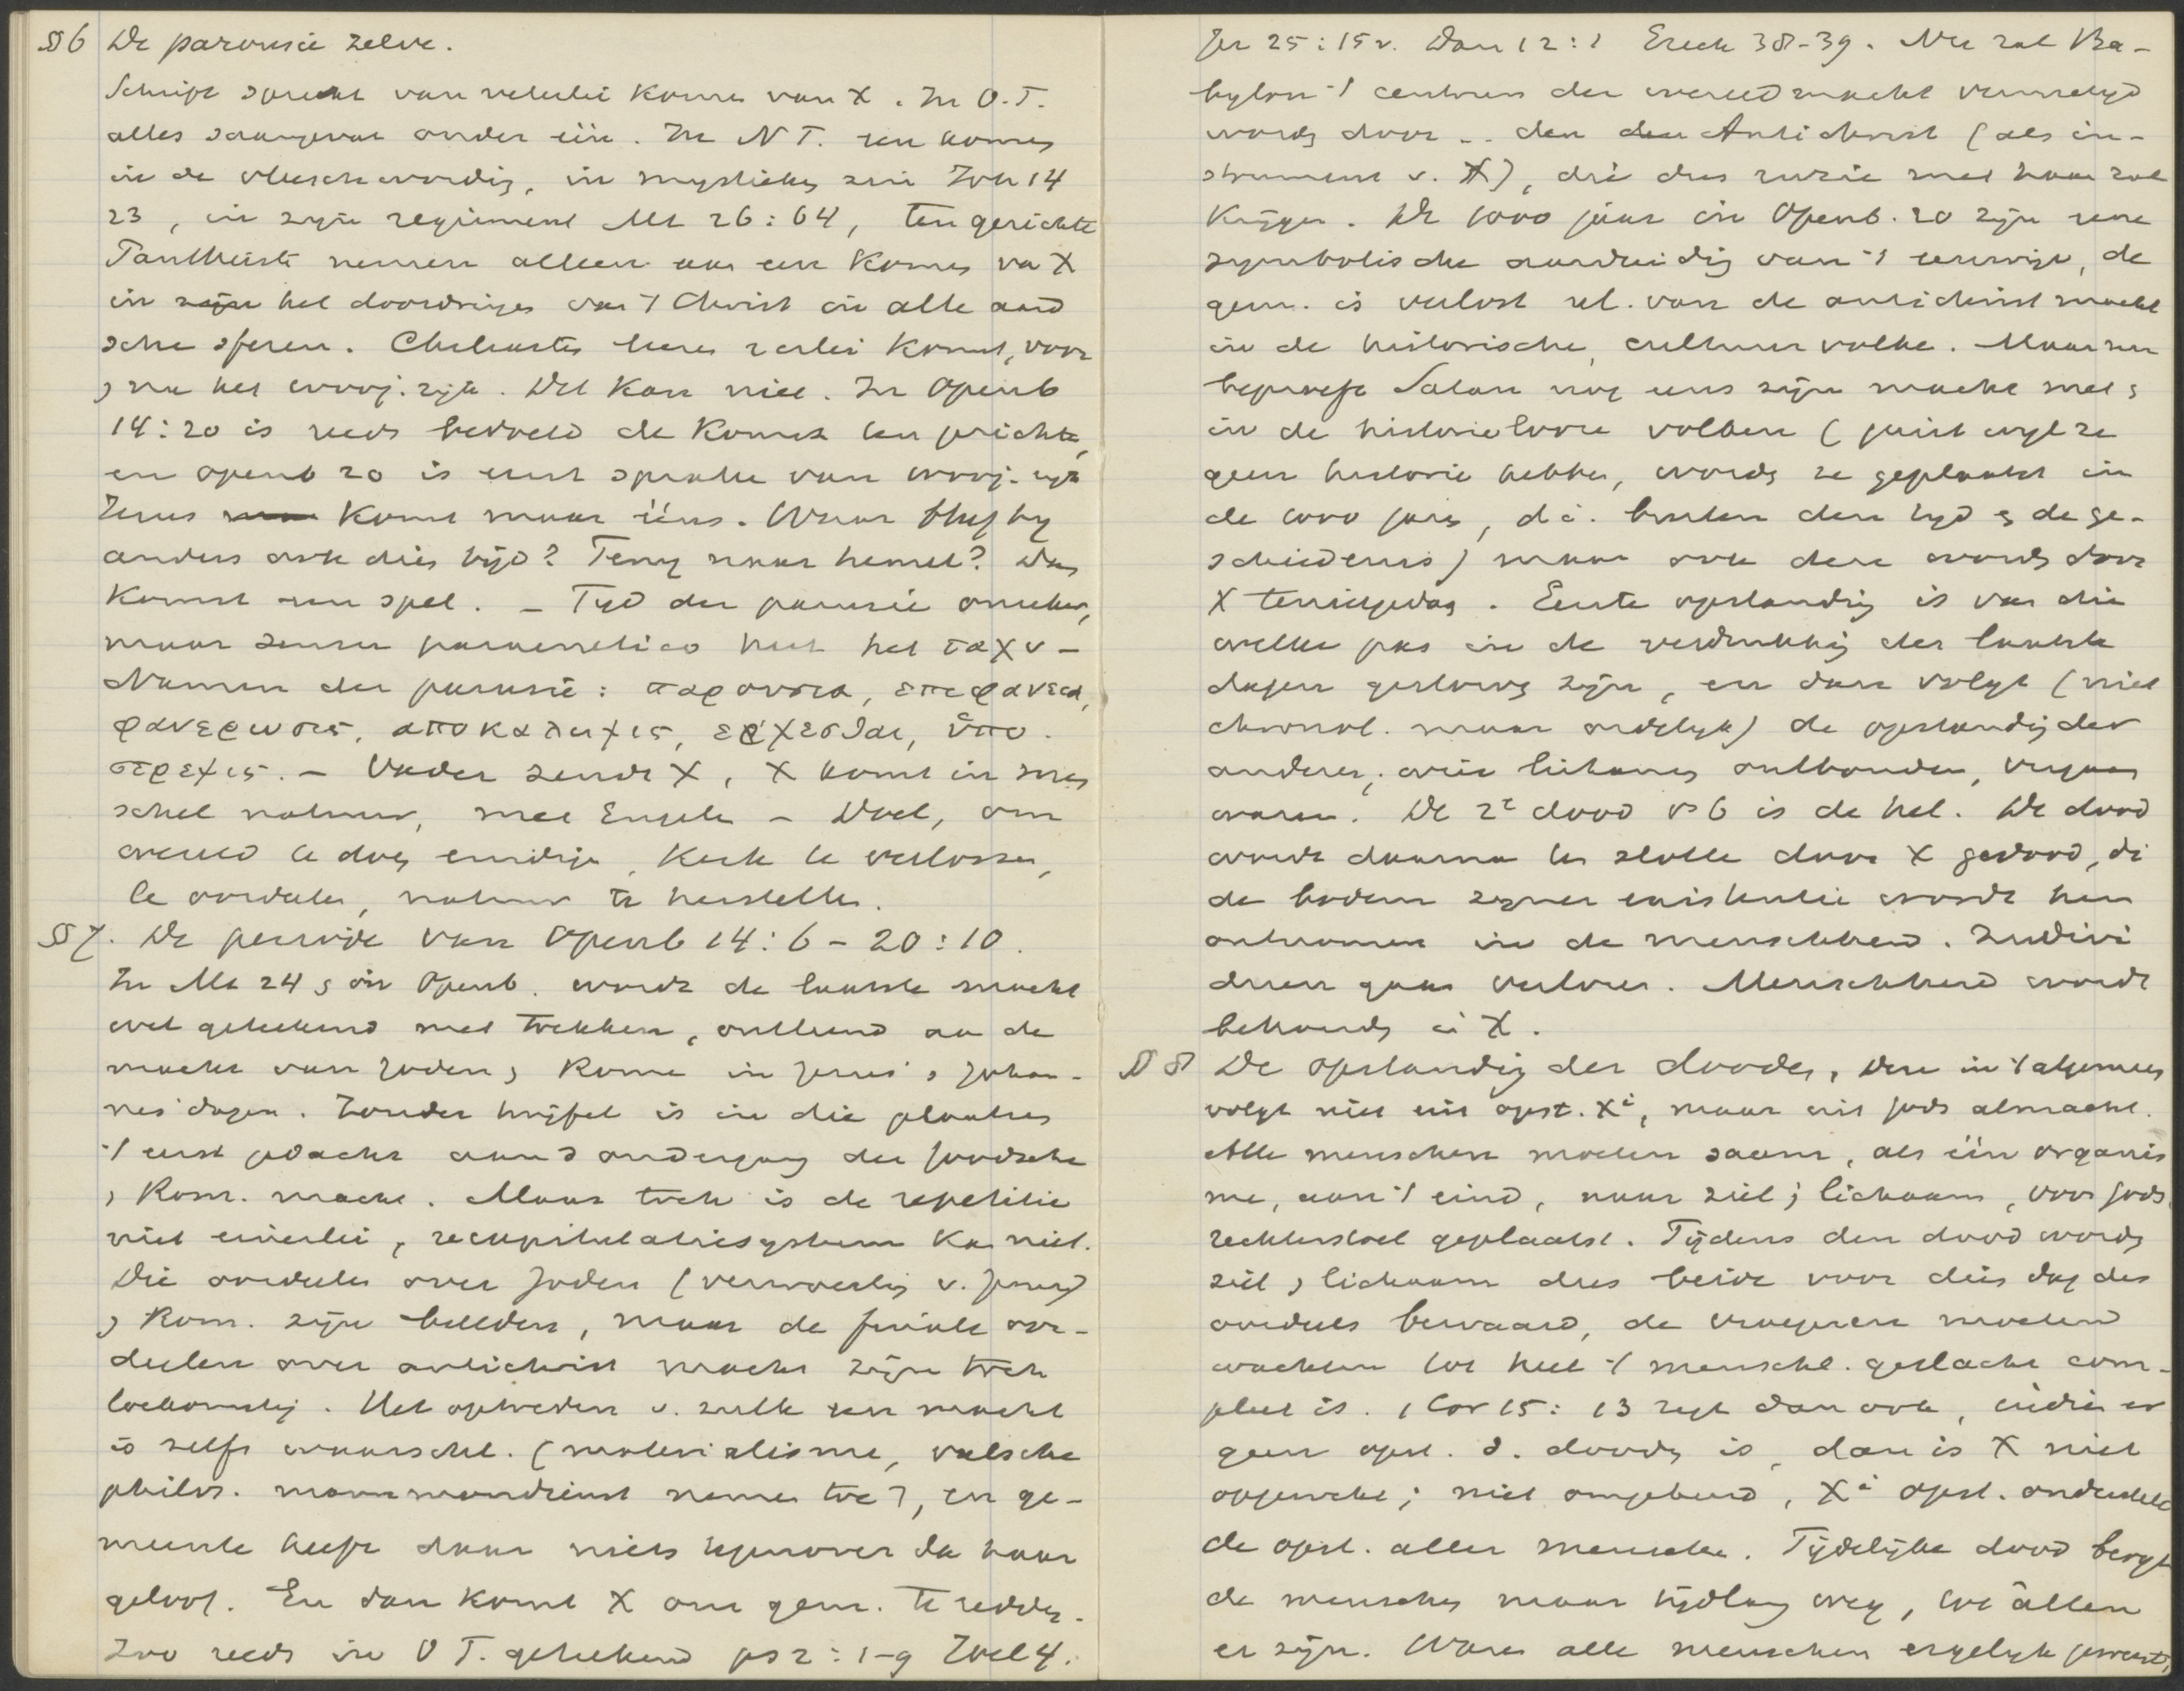 § 6 De parousie zelve.
Schrift spreekt van velerlei komen van X. In O.T.
alles saamgevat onder één. In N T. een komen
in de vleeschwording, in mystieken zin Joh 14
23, in zijn regiment Mt 26:64, ten gerichte
Pantheisten nemen alleen aan een komen va X
in het doordringen van 't Christ in alle aard
sche sferen. Chiliasten leeren 2erlei komst, voor
, na het 1000j. rijk. Dit kan niet. In Openb
14:20 is reeds bedoeld de komst ten gerichte,
en openb 20 is eerst sprake van 1000j. rijk
Jezus komt maar ééns. Waar blijft hij
anders ook dien tijd? Terug naar hemel? Dan
komst een spel. – Tijd der parousie onzeker,
maar sensu paraenetico heet het ταχυ –
Namen der parusie: παρουσια, επιφανεια,
φανερωσις, αποκαλυψις, ερχεσθαι, ὑπο
στρεψις. – Vader zendt X, X komt in men
schel natuur, met Engelen – Doel, om
wereld te doen eindigen, Kerk te verlossen,
te oordeelen, natuur te herstellen.
§ 7. De periode van Openb 14:6 – 20:10.
In Mt 24 , in Openb. wordt de laatste macht
wel geteekend met trekken, ontleend aan de
macht van Joden , Rome in Jezus' , Johan-
nes' dagen. Zonder twijfel is in die plaatsen
't eerst gedacht aan d ondergang der Joodsche
, Rom. macht. Maar toch is de repetitie
niet eenerlei, recapitulatiesysteem kan niet.
Die oordeelen over Joden (verwoesting v. Jeruz)
, Rom. zijn beelden, maar de finale oor-
deelen over antichrist macht zijn toch
toekomstig. Het optreden v. zulk een macht
is zelfs waarschl. (materialisme, valsche
philos. mammondienst nemen toe), en ge-
meente heeft daar niets tegenover dan haar
geloof. En dan komt X om gem. te redden.
Zoo reeds in O T. geteekend ps 2:1-9 Joel 4.
Jer 25:15v. Dan 12:1 Ezech 38-39. Nu zal Ba-
bylon 't centrum der wereldmacht vernietigd
worden door .. den Antichrist (als in-
strument v. X), die dus ruzie met haar zal
krijgen. De 1000 jaar in Openb. 20 zijn eene
symbolische aanduiding van 't eeuwige, de
gem. is verlost nl. van de antichrist macht
in de historische, cultuur volke. Maar nu
beproeft Satan nog eens zijn macht met ,
in de historielooze volken (juist wijl ze
geen historie hebben, worden ze geplaatst in
de 1000 jaren, d.i. buiten den tijd , de ge-
schiedenis) maar ook deze worden door
X teruggeslagen. Eerste opstanding is van die
welke pas in de verdrukking der laatste
dagen gestorven zijn, en dan volgt (niet
chronol. maar ordelijk) de opstanding der
anderen, wier lichamen ontbonden, vergaan
waren. De 2e dood vs 6 is de hel. De dood
wordt daarna ten slotte door X gedood, di
de bodem zijner existentie wordt hem
ontnomen in de menschheid. Indivi
duen gaan verloren. Menschheid wordt
behouden in X.
§ 8 De opstanding der dooden, deze in 't algemeen
volgt niet uit opst. Xi, maar uit Gods almacht.
Alle menschen moeten saam, als één organis
me, aan 't eind, naar ziel , lichaam, voor Gods
rechterstoel geplaatst. Tijdens den dood worden
ziel , lichaam dus beide voor dien dag des
oordeels bewaard, de vroegeren moeten
wachten tot heel 't menschl. geslacht com-
pleet is. 1 Cor 15:13 zegt dan ook, indien er
geen opst. d. dooden is, dan is X niet
opgewekt; niet omgekeerd, Xi opst. onderstelt
de opst. aller menschen. Tijdelijke dood bergt
de menschen maar tijdlang weg, tot allen
er zijn. Waren alle menschen ergelijk geweest,